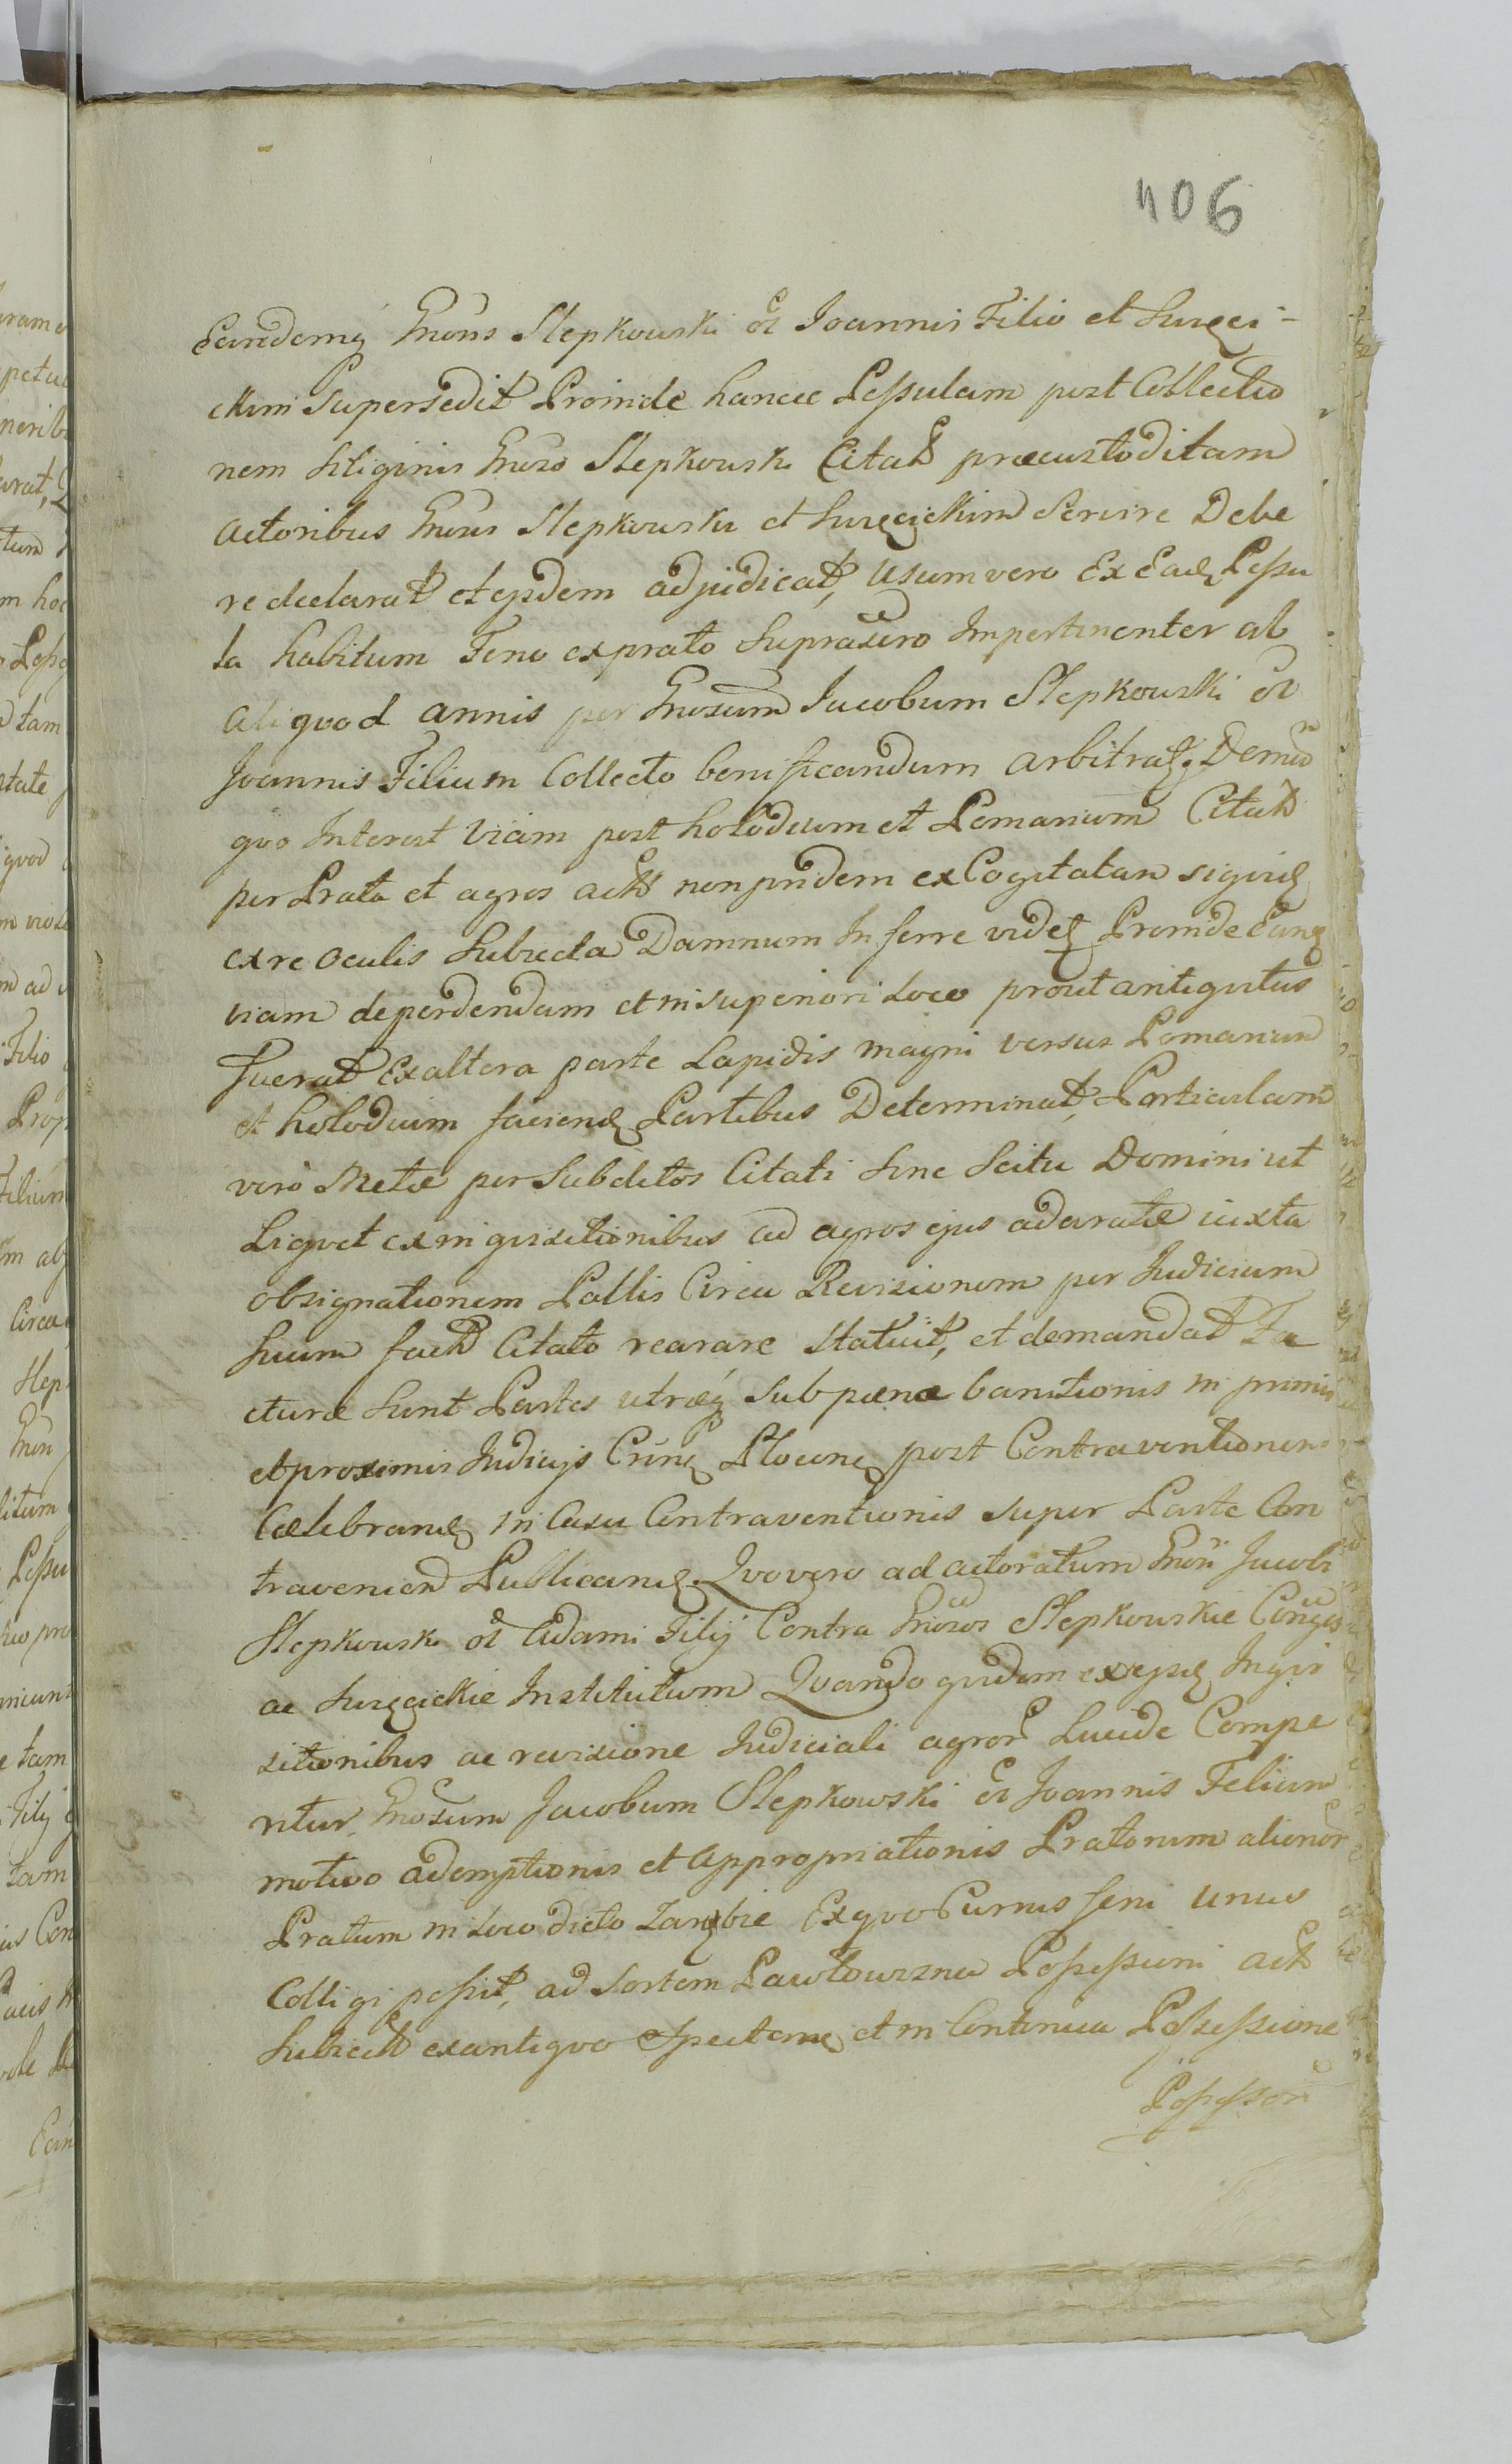 106
Eandemq Gnosus Stepkowski ol Joannis Filio et Suręci-
ckim Supersedit Proinde hancce Pessulam post Collectio
nem Siliginis Gnoso Stepkowski Citat præcustoditam
Actoribus Gnosis Stepkowski et Suręcickim Servire Debe
re declarat et ejsdem adjudicat, Usum vero Ex Eadq Pessu
la habitum Feno ex prato Suprascro Impertinenter ab
aliquod annis per Gnosum Jacobum Stepkowski ol
Joannis Filium Collecto bonificandum arbitratq. Demum
quo Interest viam post holodium et Pomarium Citat
per Prata et agros act non pridem ex Cogitatam siquidq
ex re oculis Subiecta Damnum Inferre videtq Proinde Eanq
viam deperdendam et in superiori Loco prout antiquitus
fuerat Ex altera parte Lapidis magni versus Pomarium
et holodium faciendq Partibus Determinat, Particulam
vero Metæ per Subditos Citati Sine Scitu Domini ut
Liquet ex inquisitionibus ad agros ejus adaratæ iuxta
obsignationem Pallis Circa Revisionem per Judicium
Suum fact Citato rearare Statuit, et demandat Fa
cturæ Sunt Partes utræq sub pæna banitionis in primis
et proximis Judicijs Crnq Plocenq post Contraventionem
Cælebrandq in Casu Contraventionis super Parte Con
travenien Publicandq. Quo vero ad actoratum Gnosi Jacobi
Stepkowski ol Adami Filij Contra Gnosos Stepkowskie Conges
ac Suręcickie Institutum Quando quidem ex ejsdq Inqui
sitionibus ac revisione Judiciali agror Lucide Compe
ritur, Gnosum Jacobum Stepkowski ol Joannis Filium
motivo ademptionis et appropriationis Pratorum alienor
Pratum in Loco dicto Zarębie Ex quo Currus feni unus
Colligi possit, ad Sortem Pawłowizna Possessioni act
Subiect ex antiquo Spectans et in Continua Possessione
Possessor